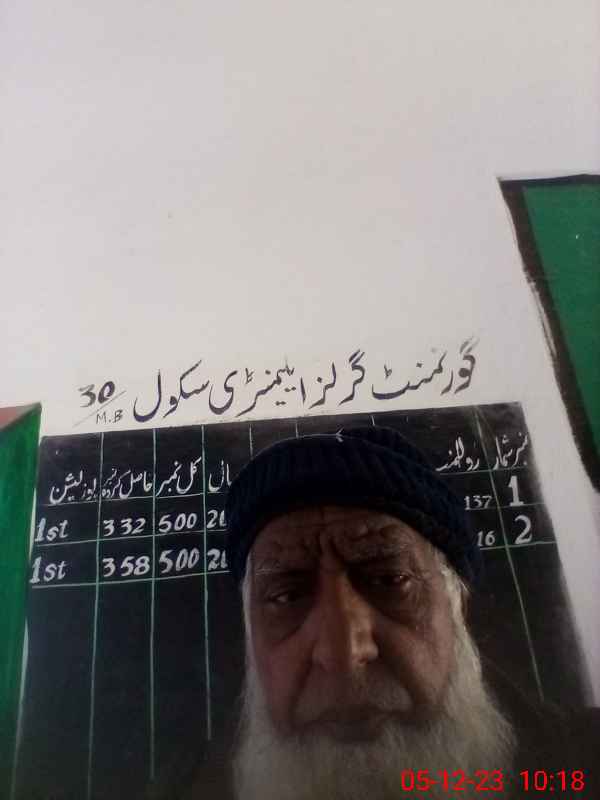 گورنمنٹ گرلز ایلیمنٹری سکول 30/M.B
نمبر شمار رولنمبر کل نمبر حاصل کردہ نمبر پوزیشن
1 137 500 332 1st
2 16 500 358 1st
05-12-23 10:18